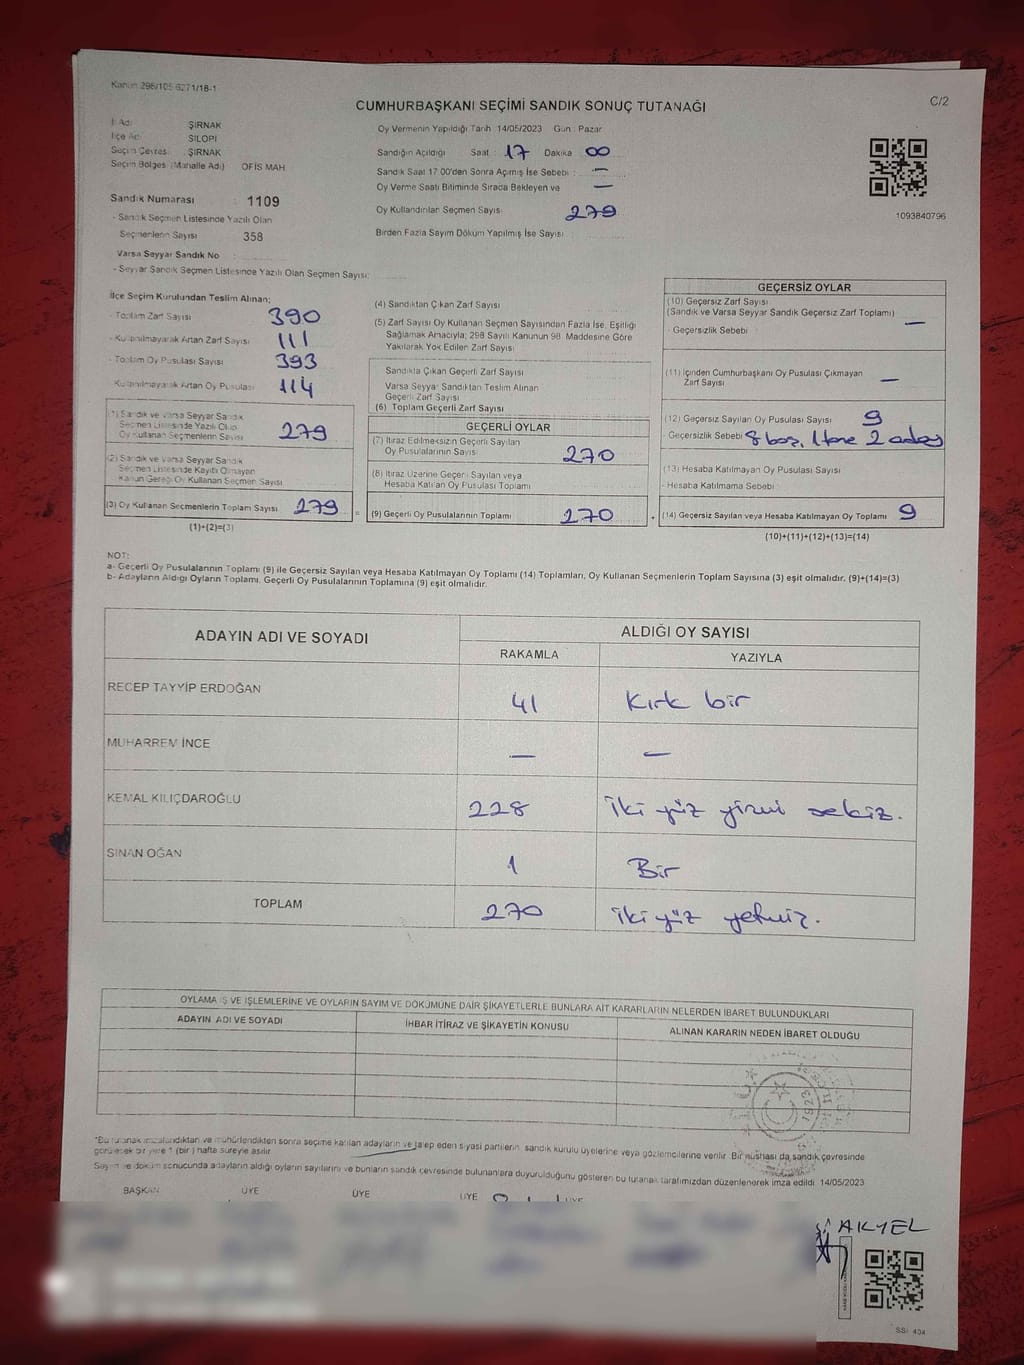 Kanun 298/105 6271/18-1
C/2
CUMHURBAŞKANI SEÇİMİ SANDIK SONUÇ TUTANAĞI
İl Adı ŞIRNAK
İlçe Adı SİLOPİ
Seçim Çevresi ŞIRNAK
Seçim Bölgesi (Mahalle Adı) OFİS MAH
Sandık Numarası : 1109
- Sandık Seçmen Listesinde Yazılı Olan
Seçmenlerin Sayısı 358
Varsa Seyyar Sandık No
- Seyyar Sandık Seçmen Listesinde Yazılı Olan Seçmen Sayısı:
Oy Vermenin Yapıldığı Tarih 14/05/2023 Gün : Pazar
Sandığın Açıldığı Saat : 17 Dakika 00
Sandık Saat 17 00'den Sonra Açılmış İse Sebebi : —
Oy Verme Saati Bitiminde Sırada Bekleyen ve —
Oy Kullandırılan Seçmen Sayısı 279
Birden Fazla Sayım Döküm Yapılmış İse Sayısı :
1093840796
İlçe Seçim Kurulundan Teslim Alınan;
- Toplam Zarf Sayısı 390
- Kullanılmayarak Artan Zarf Sayısı 111
- Toplam Oy Pusulası Sayısı 393
Kullanılmayarak Artan Oy Pusulası 114
(1) Sandık ve Varsa Seyyar Sandık
Seçmen Listesinde Yazılı Olup
Oy Kullanan Seçmenlerin Sayısı 279
(2) Sandık ve Varsa Seyyar Sandık
Seçmen Listesinde Kayıtlı Olmayan
Kanun Gereği Oy Kullanan Seçmen Sayısı
(3) Oy Kullanan Seçmenlerin Toplam Sayısı 279 =
(1)+(2)=(3)
(4) Sandıktan Çıkan Zarf Sayısı
(5) Zarf Sayısı Oy Kullanan Seçmen Sayısından Fazla İse, Eşitliği
Sağlamak Amacıyla; 298 Sayılı Kanunun 98. Maddesine Göre
Yakılarak Yok Edilen Zarf Sayısı
Sandıkta Çıkan Geçerli Zarf Sayısı
Varsa Seyyar Sandıktan Teslim Alınan
Geçerli Zarf Sayısı
(6) Toplam Geçerli Zarf Sayısı
GEÇERLİ OYLAR
(7) İtiraz Edilmeksizin Geçerli Sayılan
Oy Pusulalarının Sayısı 270
(8) İtiraz Üzerine Geçerli Sayılan veya
Hesaba Katılan Oy Pusulası Toplamı
(9) Geçerli Oy Pusulalarının Toplamı 270 +
GEÇERSİZ OYLAR
(10) Geçersiz Zarf Sayısı
(Sandık ve Varsa Seyyar Sandık Geçersiz Zarf Toplamı) —
- Geçersizlik Sebebi :
(11) İçinden Cumhurbaşkanı Oy Pusulası Çıkmayan
Zarf Sayısı —
(12) Geçersiz Sayılan Oy Pusulası Sayısı 9
- Geçersizlik Sebebi : 8 boş, 1 tane 2 aday
(13) Hesaba Katılmayan Oy Pusulası Sayısı
- Hesaba Katılmama Sebebi
(14) Geçersiz Sayılan veya Hesaba Katılmayan Oy Toplamı 9
(10)+(11)+(12)+(13)=(14)
NOT:
a- Geçerli Oy Pusulalarının Toplamı (9) ile Geçersiz Sayılan veya Hesaba Katılmayan Oy Toplamı (14) Toplamları, Oy Kullanan Seçmenlerin Toplam Sayısına (3) eşit olmalıdır. (9)+(14)=(3)
b- Adayların Aldığı Oyların Toplamı, Geçerli Oy Pusulalarının Toplamına (9) eşit olmalıdır.
ADAYIN ADI VE SOYADI
ALDIĞI OY SAYISI
RAKAMLA YAZIYLA
RECEP TAYYİP ERDOĞAN 41 Kırk bir
MUHARREM İNCE — —
KEMAL KILIÇDAROĞLU 228 iki yüz yirmi sekiz.
SİNAN OĞAN 1 Bir
TOPLAM 270 iki yüz yetmiş.
OYLAMA İŞ VE İŞLEMLERİNE VE OYLARIN SAYIM VE DÖKÜMÜNE DAİR ŞİKAYETLERLE BUNLARA AİT KARARLARIN NELERDEN İBARET BULUNDUKLARI
ADAYIN ADI VE SOYADI İHBAR İTİRAZ VE ŞİKAYETİN KONUSU ALINAN KARARIN NEDEN İBARET OLDUĞU
1923
*Bu tutanak imzalandıktan ve mühürlendikten sonra seçime katılan adayların ve talep eden siyasi partilerin sandık kurulu üyelerine veya gözlemcilerine verilir. Bir nüshası da sandık çevresinde
görülecek bir yere 1 (bir) hafta süreyle asılır.
Sayım ve döküm sonucunda adayların aldığı oyların sayılarını ve bunların sandık çevresinde bulunanlara duyurulduğunu gösteren bu tutanak tarafımızdan düzenlenerek imza edildi. 14/05/2023
BAŞKAN ÜYE ÜYE ÜYE ÜYE
AKYEL
SSI 404